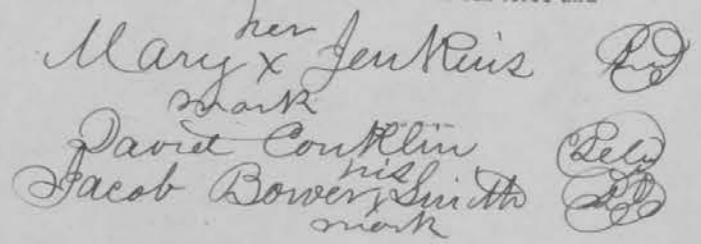 and
her
Mary x Jenkins
mark
David Conklin
his
Jacob Bower x Smith
mark